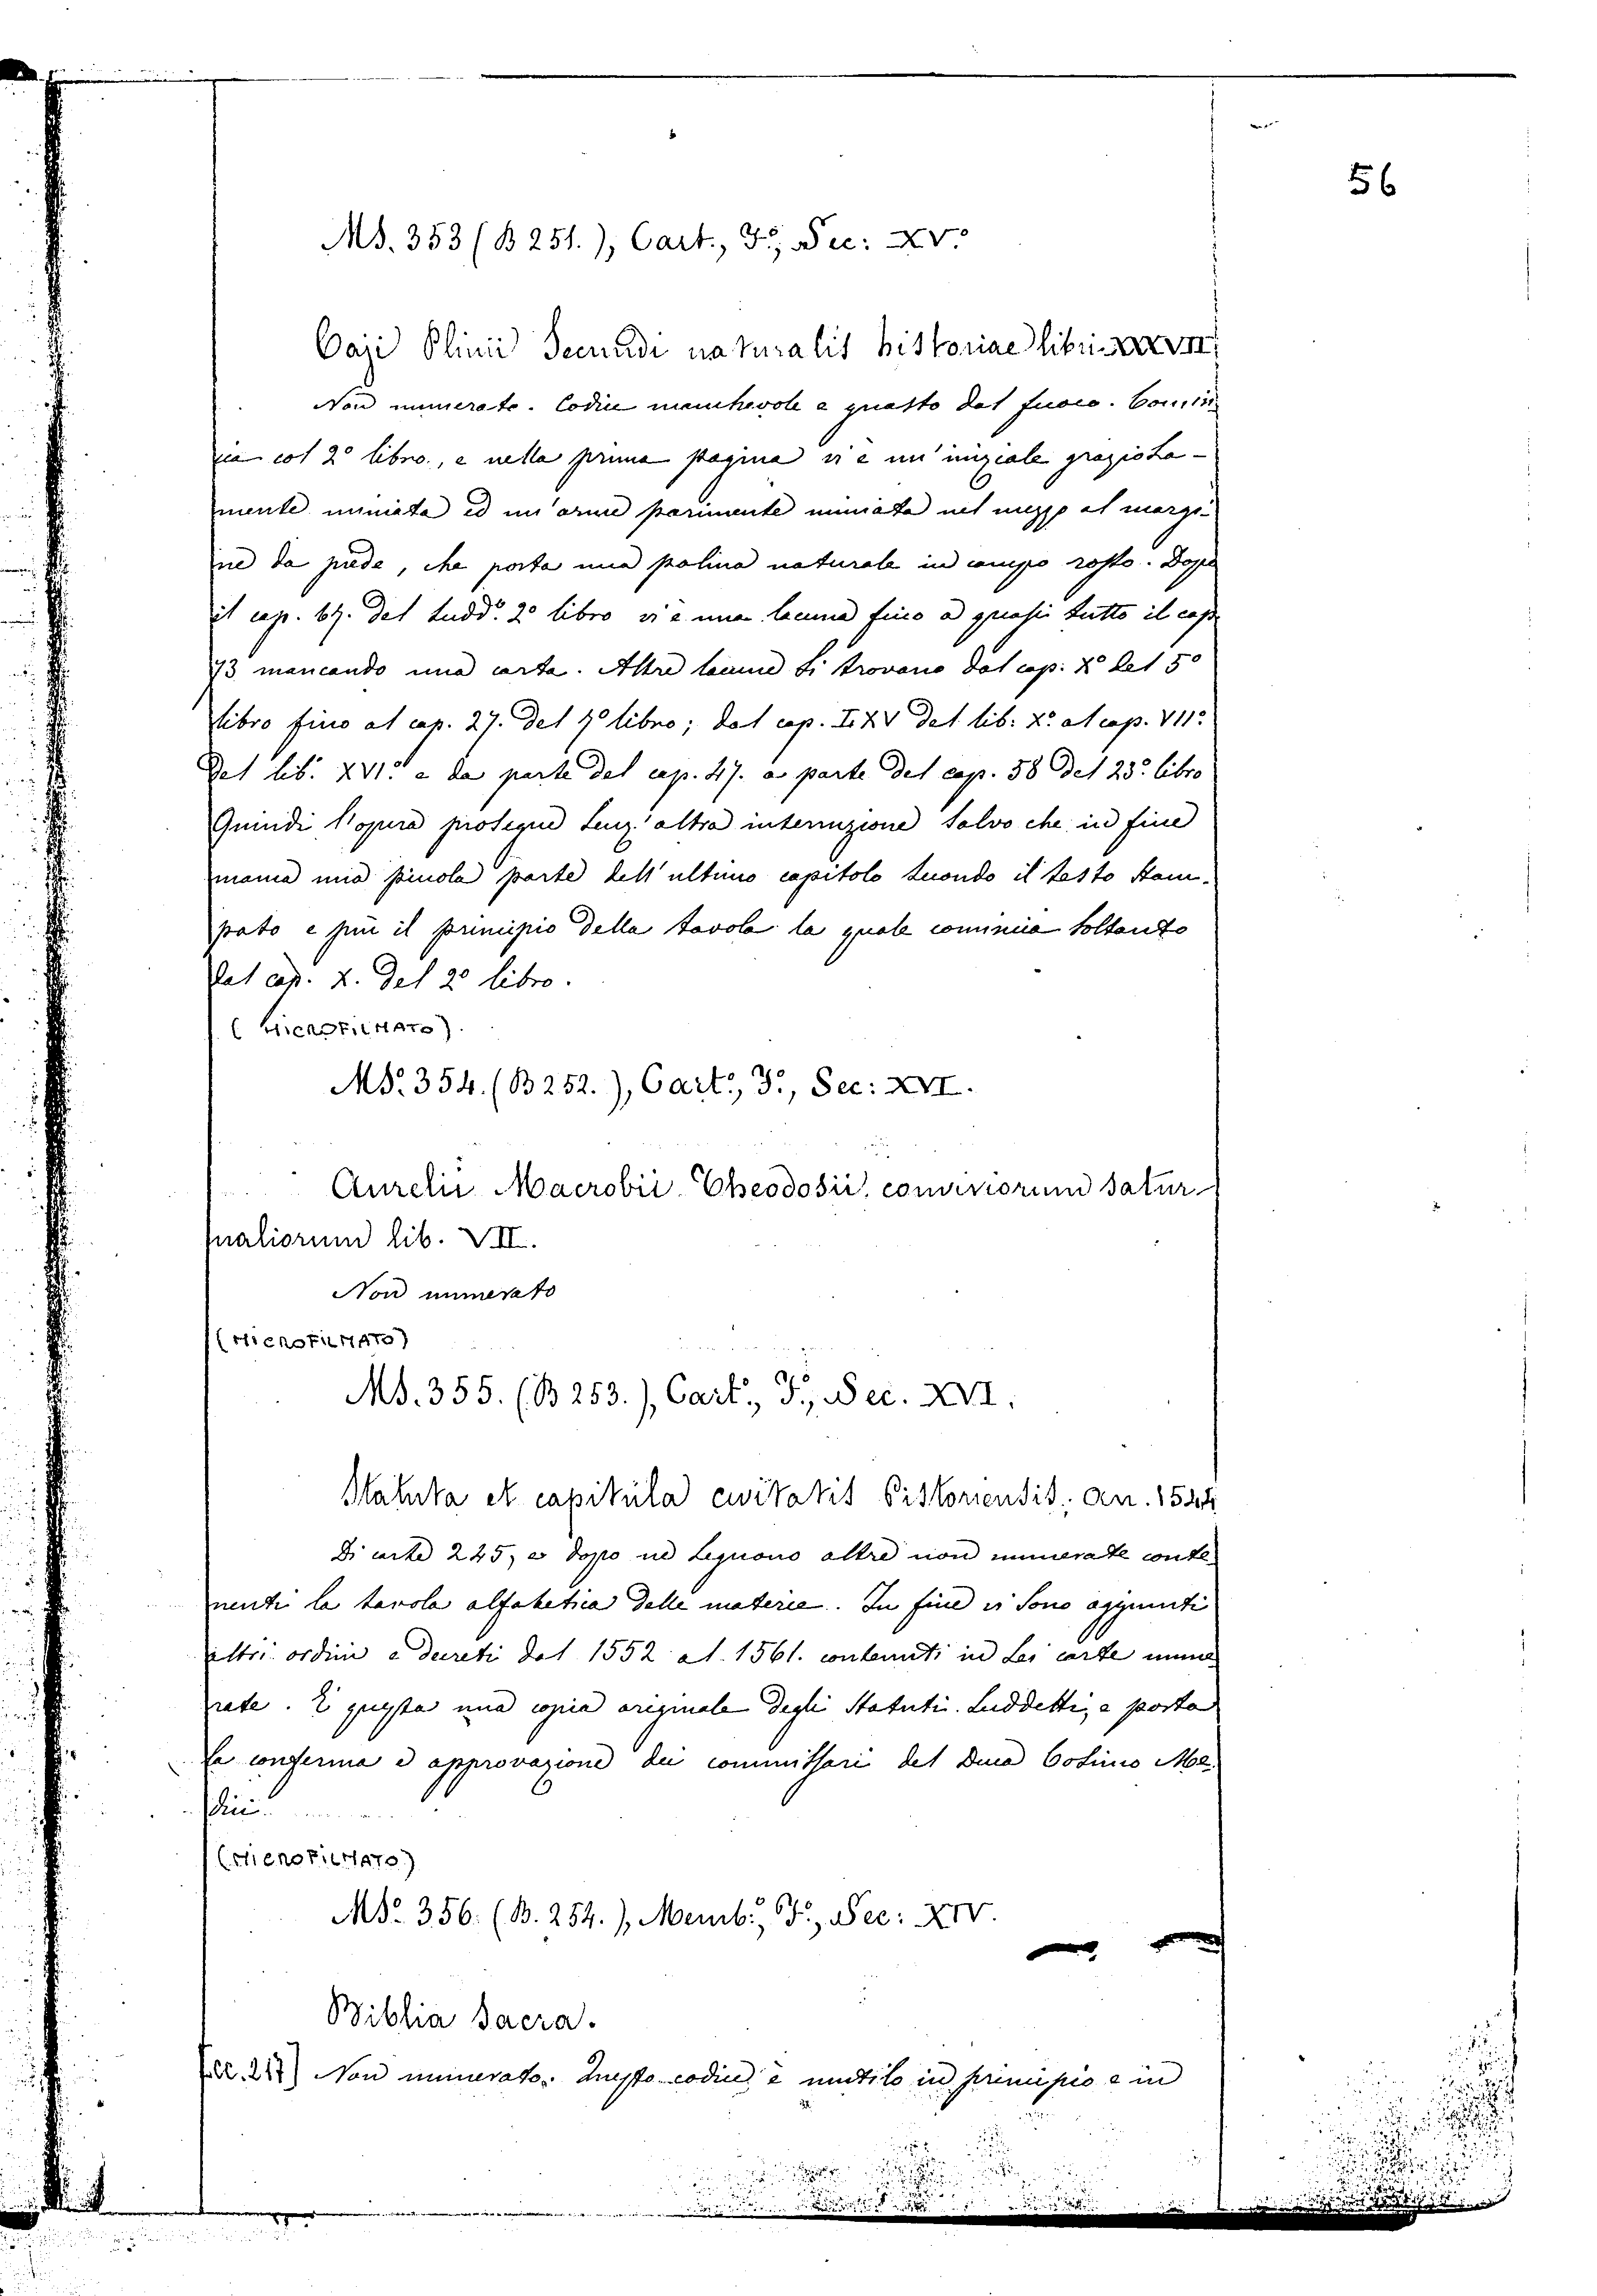 56
Ms. 353 (B 251.), Cart., F.º, Sec: XV.º
Caji Plinii Secundi naturalis historiae libri XXXVII.
Non numerato. Codice manchevole e guasto dal fuoco. Comin
cia col 2º libro, e nella prima pagina vi è un'iniziale graziosa-
mente miniata ed un'arme parimente miniata nel mezzo al margi-
ne da piede, che porta una palina naturale in campo rosso. Dopo
il cap. 67. del sudd.º 2º libro vi è una lacuna fino a quasi tutto il cap
73 mancando una carta. Altre lacune si trovano dal cap. Xº del 5º
libro fino al cap. 27. del 7º libro; dal cap. LXV del lib: Xº al cap. VIIº
del lib. XVI.º e da parte del cap. 47. a parte del cap. 58 del 23º libro
Quindi l'opera prosegue senz'altra interruzione salvo che in fine
manca una piccola parte dell'ultimo capitolo secondo il testo stam-
pato e più il principio della tavola la quale comincia soltanto
dal cap. X. del 2º libro.
(MICROFILMATO).
Ms. 354. (B 252.), Cart., F.º, Sec: XVI.
Aurelii Macrobii Theodosii, conviviorum satur-
naliorum lib. VII.
Non numerato
(MICROFILMATO)
Ms. 355. (B 253.), Cart., F.º, Sec. XVI.
Statuta et capitula civitatis Pistoriensis, an.
Di carte 245, e dopo ne seguono altre non numerate conte
nenti la tavola alfabetica delle materie. In fine vi sono aggiunti
altri ordini e decreti dal 1552 al 1561. contenuti in sei carte nume
rate. È questa una copia originale degli Statuti suddetti, e porta
la conferma e approvazione dei commissari del Duca Cosimo Me-
dici
(MICROFILMATO)
Ms. 356. (B. 254.), Memb., F.º, Sec: XIV.
Biblia Sacra.
Non numerato. Questo codice è mutilo in principio e in